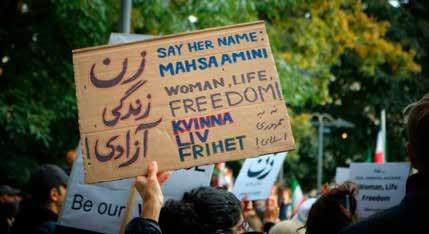 زن
زندگی
آزادی!
SAY HER NAME:
MAHSA AMINI
WOMAN, LIFE,
FREEDOM!
KVINNA
LIV
FRIHET
نه به
جمهوری
اسلامی!
Be our
زن
Woman, Life,
Freedom